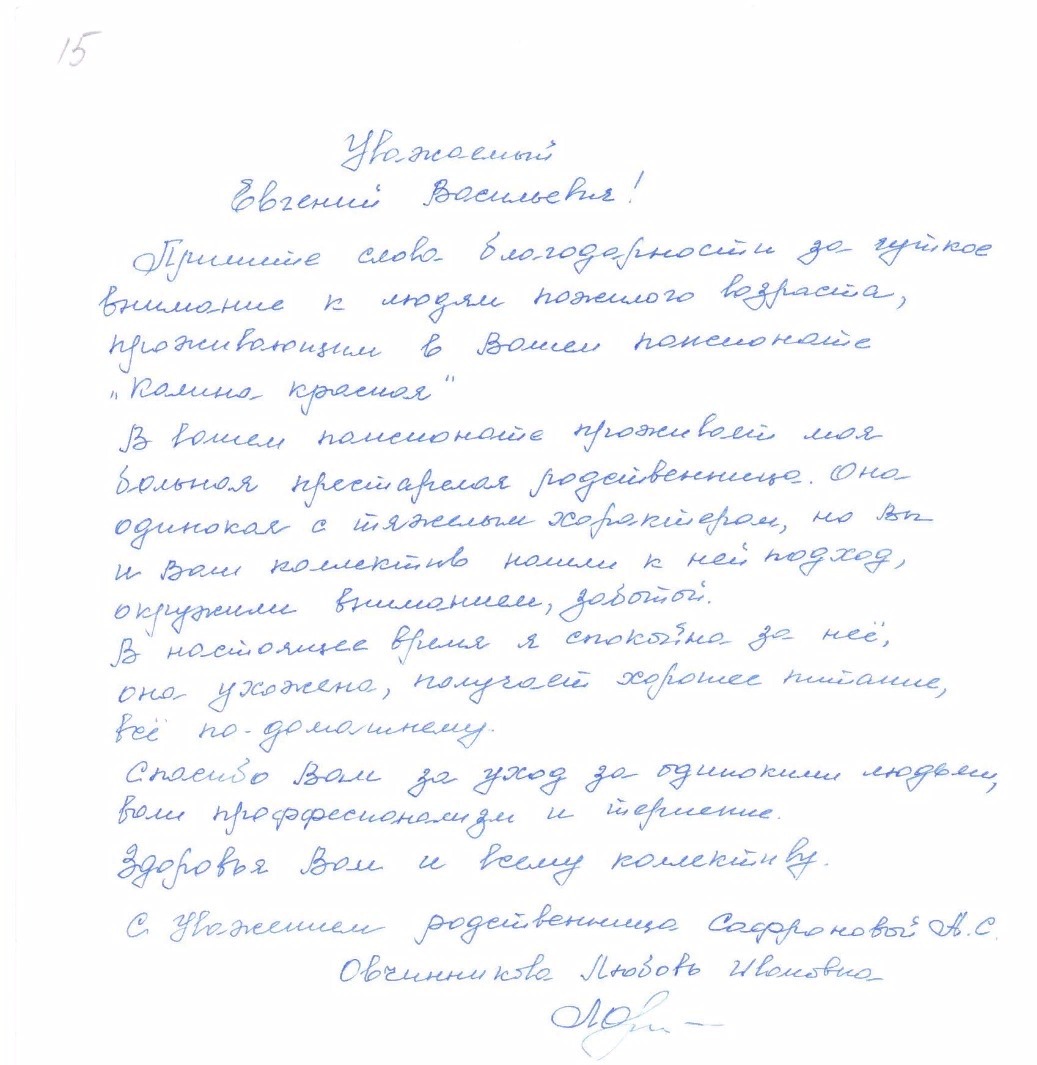 15
Уважаемый
Евгений Васильевич!
Примите слова благодарности за чуткое
внимание к людям пожилого возраста,
проживающим в Вашем пансионате
„Калина красная"
В вашем пансионате проживает моя
больная престарелая родственница. Она
одинокая с тяжелым характером, но Вы
и Ваш коллектив нашли к ней подход,
окружили вниманием, заботой.
В настоящее время я спокойна за неё,
она ухожена, получает хорошее питание,
всё по-домашнему.
Спасибо Вам за уход за одинокими людьми,
ваш проффесионализм и терпение.
Здоровья Вам и всему коллективу.
С Уважением родственница Сафроновой А.С.
Овчинникова Любовь Ивановна